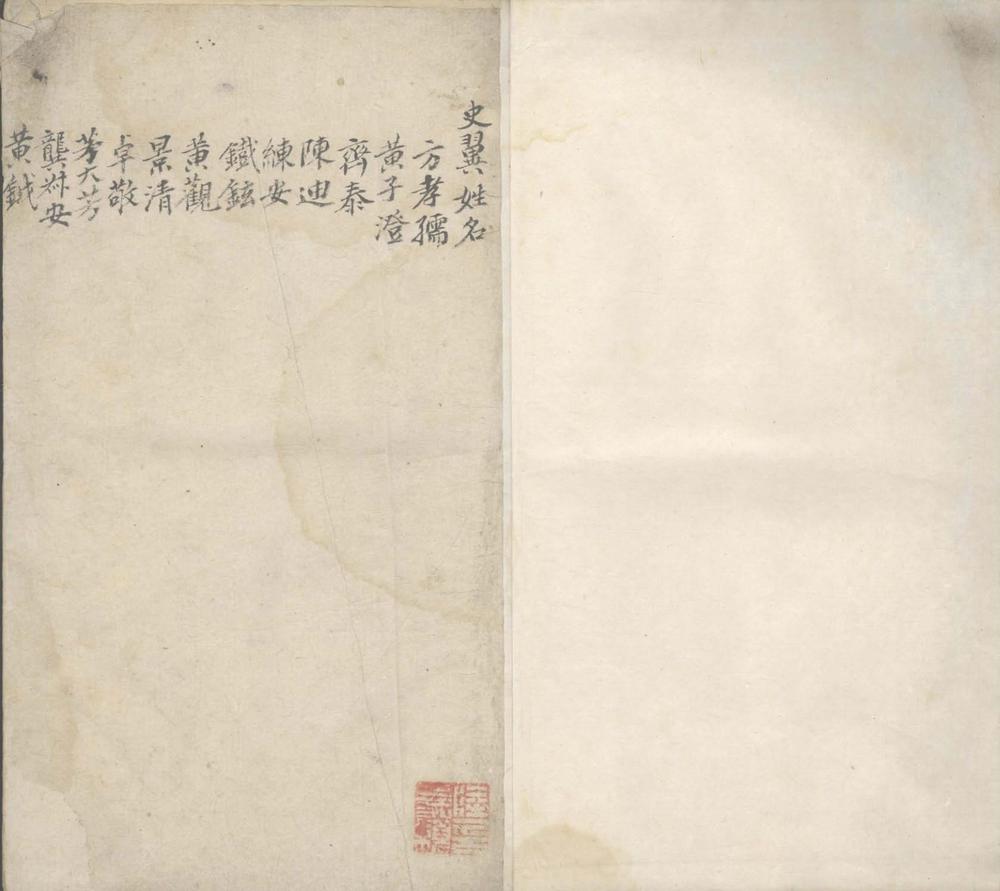 史翼姓名
方孝孺
黃子澄
齊泰
陳迪
練安
鐵鉉
黃觀
景清
卓敬
茅大芳
龔泰安
黃鉞